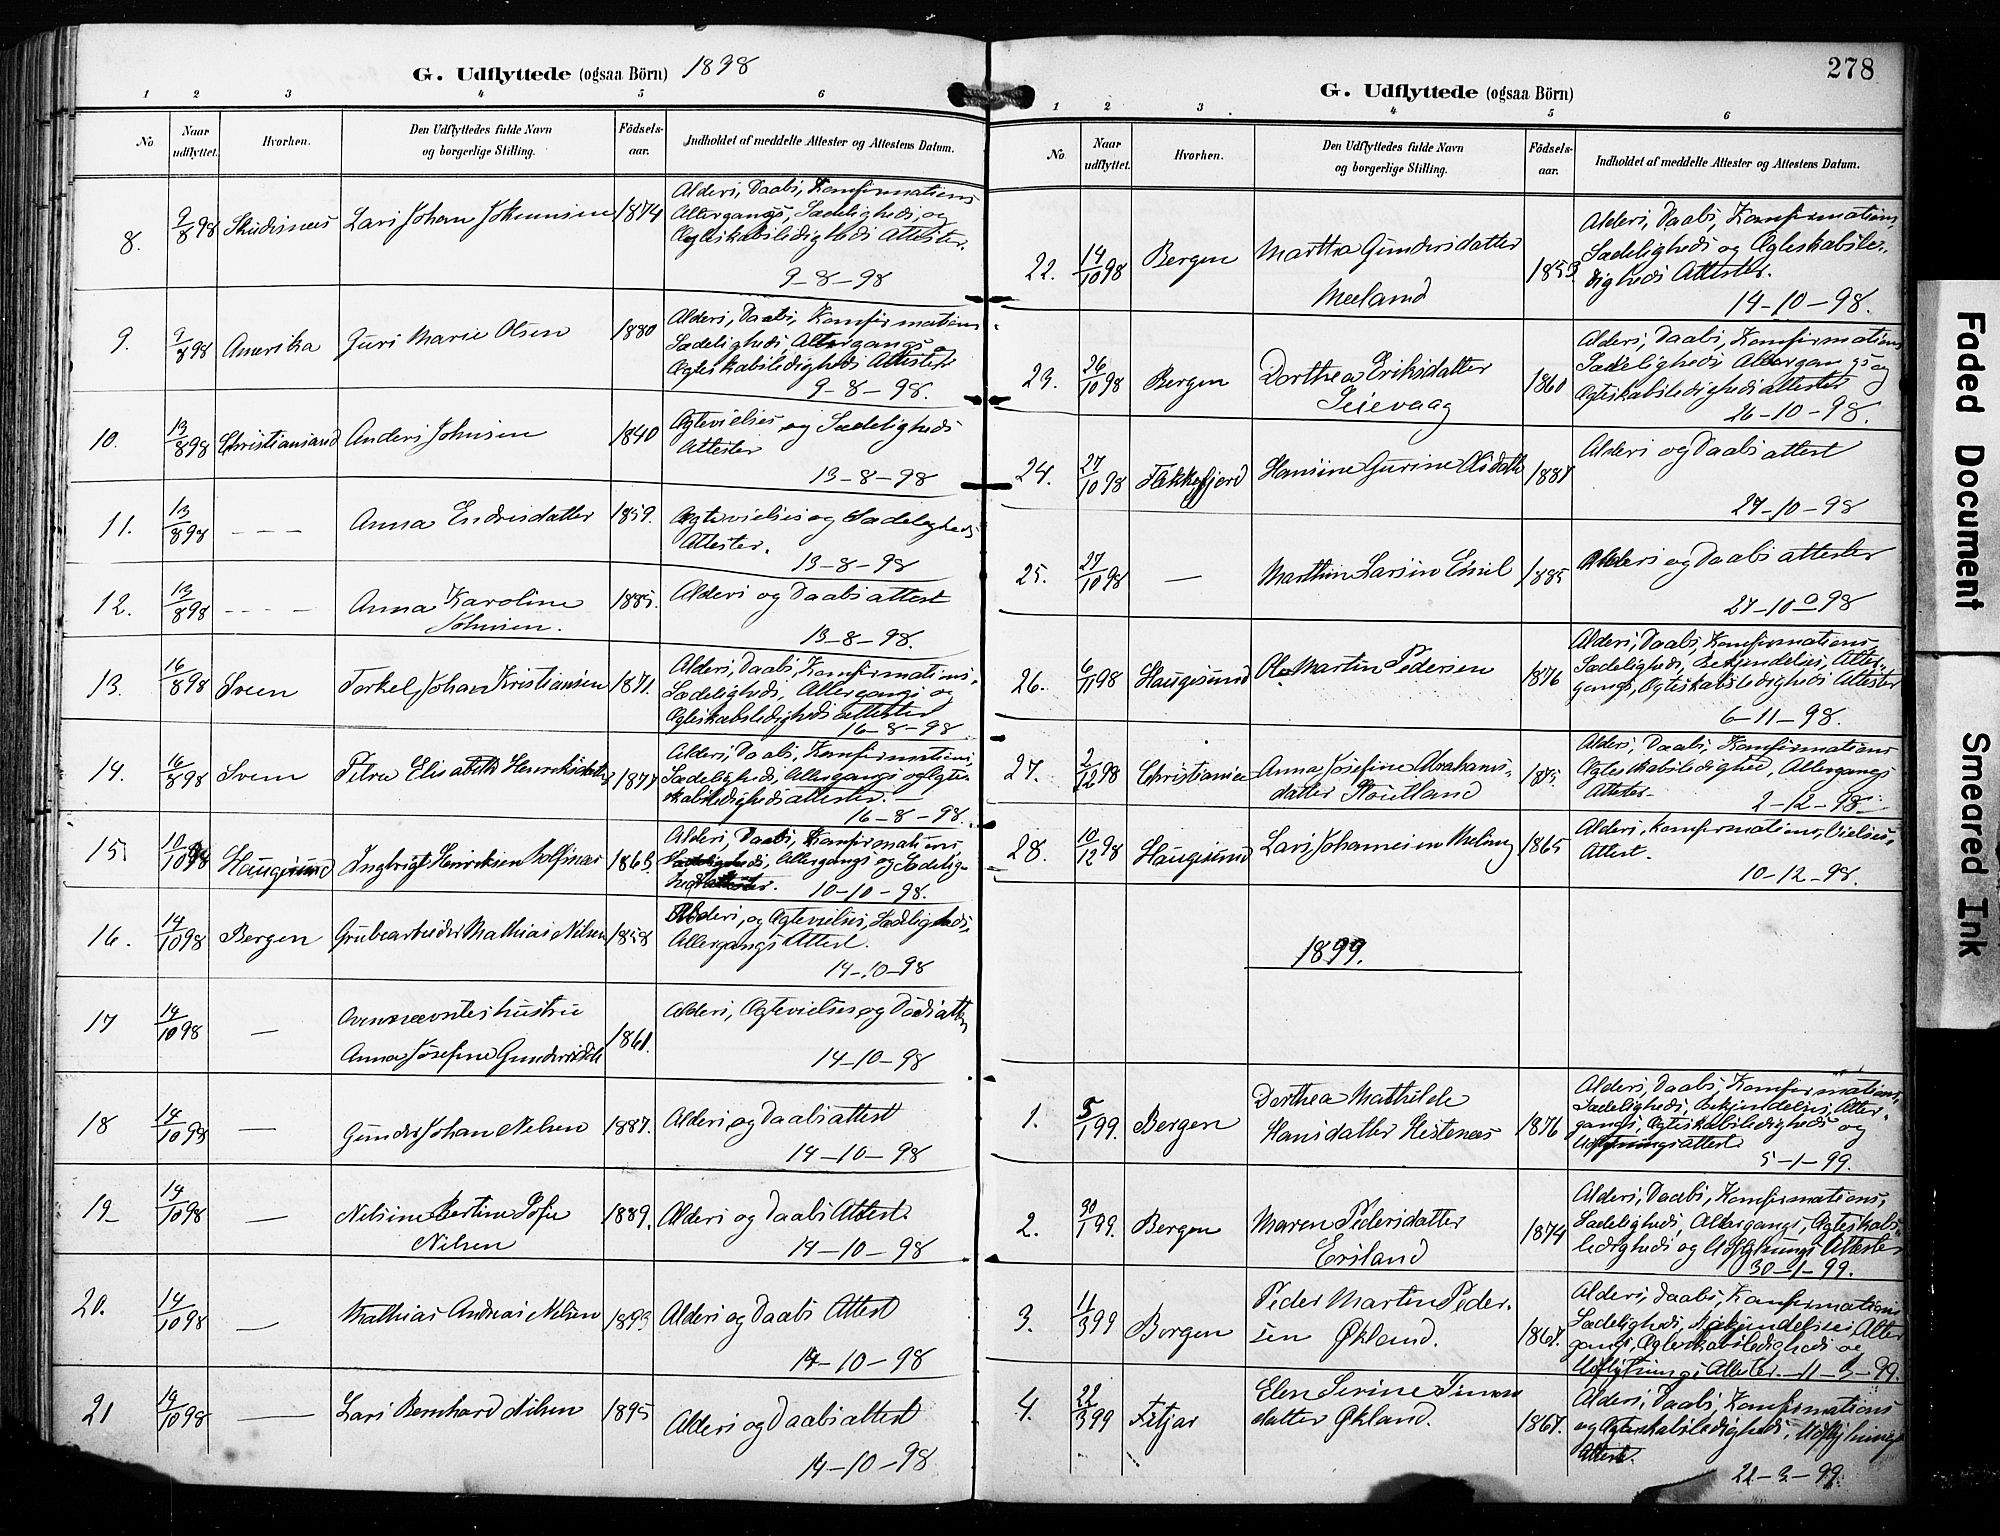 G. Udflyttede (ogsaa Börn) 1898
1 2 3 4 5 6
No
Naar udflyttet.
Hvorhen.
Den Udflyttedes fulde Navn og borgerlige Stilling.
Födsels-aar.
Indholdet af meddelte Attester og Attestens Datum.
8. 9/8 98 Skudesnes Lars Johan Johannsen 1874 Alders, Daabs, Konfirmations
Altergangs, Sædeligheds, og
Ogteskabsledigheds Attester.
9-8-98
9. 9/8 98 Amerika Guri Marie Olsen 1880 Alders, Daabs, Konfirmations
Sædeligheds Altergangs
Ogteskabsledigheds Attester
9-8-98.
10. 13/8 98 Christiansand Anders Johnsen 1840 Ogtevielses og Sædeligheds
Attester
13-8-98
11. 13/8 98 - - - Anna Endresdatter 1859. Ogtevielses og Sædeligheds
Attester.
13-8-98
12. 13/8 98 - - - - Anna Karoline 1885. Alders og Daabsattest
Johnsen.
13-8-98.
13. 16/8 98 Sveen Torkel Johan Kristiansen 1871. Alders, Daabs, Konfirmations,
Sædeligheds, Altergangs og
Ogteskabsledigheds attester
16-8-98
14. 16/8 98 Sveen Petra Elisabeth Henriksdatter 1877 Alders, Daabs, Konfirmations,
Sædeligheds, Altergangs og Ogte-
skabsledigheds attester. -
16-8-98.
15 10/10 98 Haugesund Ingbrigt Henriksen 1863. Alders, Daabs, Konfirmations,
Altergangs og Sædelig-
10-10-98.
16. 14/10 98 Bergen Grubearbeider Mathias Nilsen 1858 Alders, og Ogtevielses, Sædeligheds,
Altergangs Attest.
14-10-98
17 14/10 98 — hustru
Anna Josefine Gundersdtr 1861. Alders, Ogtevielses og Daabsatten
14-10-98
18 14/10 98 — Gunder Johan Nilsen 1887. Alders og Daabsattest
14-10-98
19- 14/10 98 — Nilsine Bertine Sofie 1889. Alders og Daabs Attest.
Nilsen
14-10-98
20. 14/10 98 — Mathias Andreas Nilsen 1893 Alders og Daabs Attest
14-10-98
21 14/10 98 — Lars Bernhard Nilsen 1895 Alders og Daabsattest
14-10-98
278
G. Udflyttede (ogsaa Börn)
1 2 3 4 5 6
No
Naar udflyttet.
Hvorhen.
Den Udflyttedes fulde Navn og borgerlige Stilling.
Födsels-aar.
Indholdet af meddelte Attester og Attestens Datum.
22. 14/10 98 Bergen Martha Gundersdatter
Meeland 1853. Alders, Daabs, Konfirmations,
Sædeligheds og Ogteskabsle-
digheds Attester.
14-10-98.
23. 26/10 98 Bergen Dorthea Eriksdatter 1860 Alders, Daabs, Konfirmations
Seievaag
Sædeligheds Altergangs og
Ogteskabsledighedsattester
26-10-98.
24. 27/10 98 Flekkefjord Hansine Gurine 1887 Alders og Daabsattest
27-10-98
25. 27/10 98 — Marthin Larsen Emil 1885 Alders og Daabsattester
27-10-98
26. 6/11 98 Haugesund Ole Martin Pedersen 1876 Alders, Daabs, Konfirmations-
Sædeligheds, Bekjendelses, Alter-
gangs, Ogteskabsledigheds Attester
6-11-98.
27. 2/12 98 Christiania Anna Josefine Abrahams-
datter 1875. Alders, Daabs, Konfirmations
Ogteskabsledighed, Altergangs
Attester-
2-12-98.
28. 10/12 98 Haugesund Lars Johannesen Meling 1865 Alders, Konfirmations, Vielses,
Attest.
10-12-98.
1899.
1. 5/1 99. Bergen Dorthea Mathilde
Hansdatter Hestenæs 1876 Alders, Daabs, Konfirmations,
Sædeligheds, Bekjendelses, Alter-
gangs, Ogteskabsledigheds og
Udflytningsattest
5-1-99.
2. 30/1 99. Bergen Maren Pedersdatter 1874 Alders, Daabs, Konfirmations,
Ersland
Sædeligheds, Altergangs, Ogteskabs-
ledigheds og Udflytnings Attester
30-1-99.
3. 11/3 99 Bergen Peder Martin Peder-
sen Økland. 1867. Alders, Daabs, Konfirmations
Sædeligheds, Bekjendelses, Alter
gangs, Ogteskabsledigheds og
Udflytnings Attester. 11-3-99.
4. 22/3 99 Fitjar Elen Serine Simons
datter Økland. 1867. Alders, Daabs, Konfirmations
og Ogteskabsledigheds, Udflytnings
Attest.
22-3-99.
Faded Document
Smeared Ink